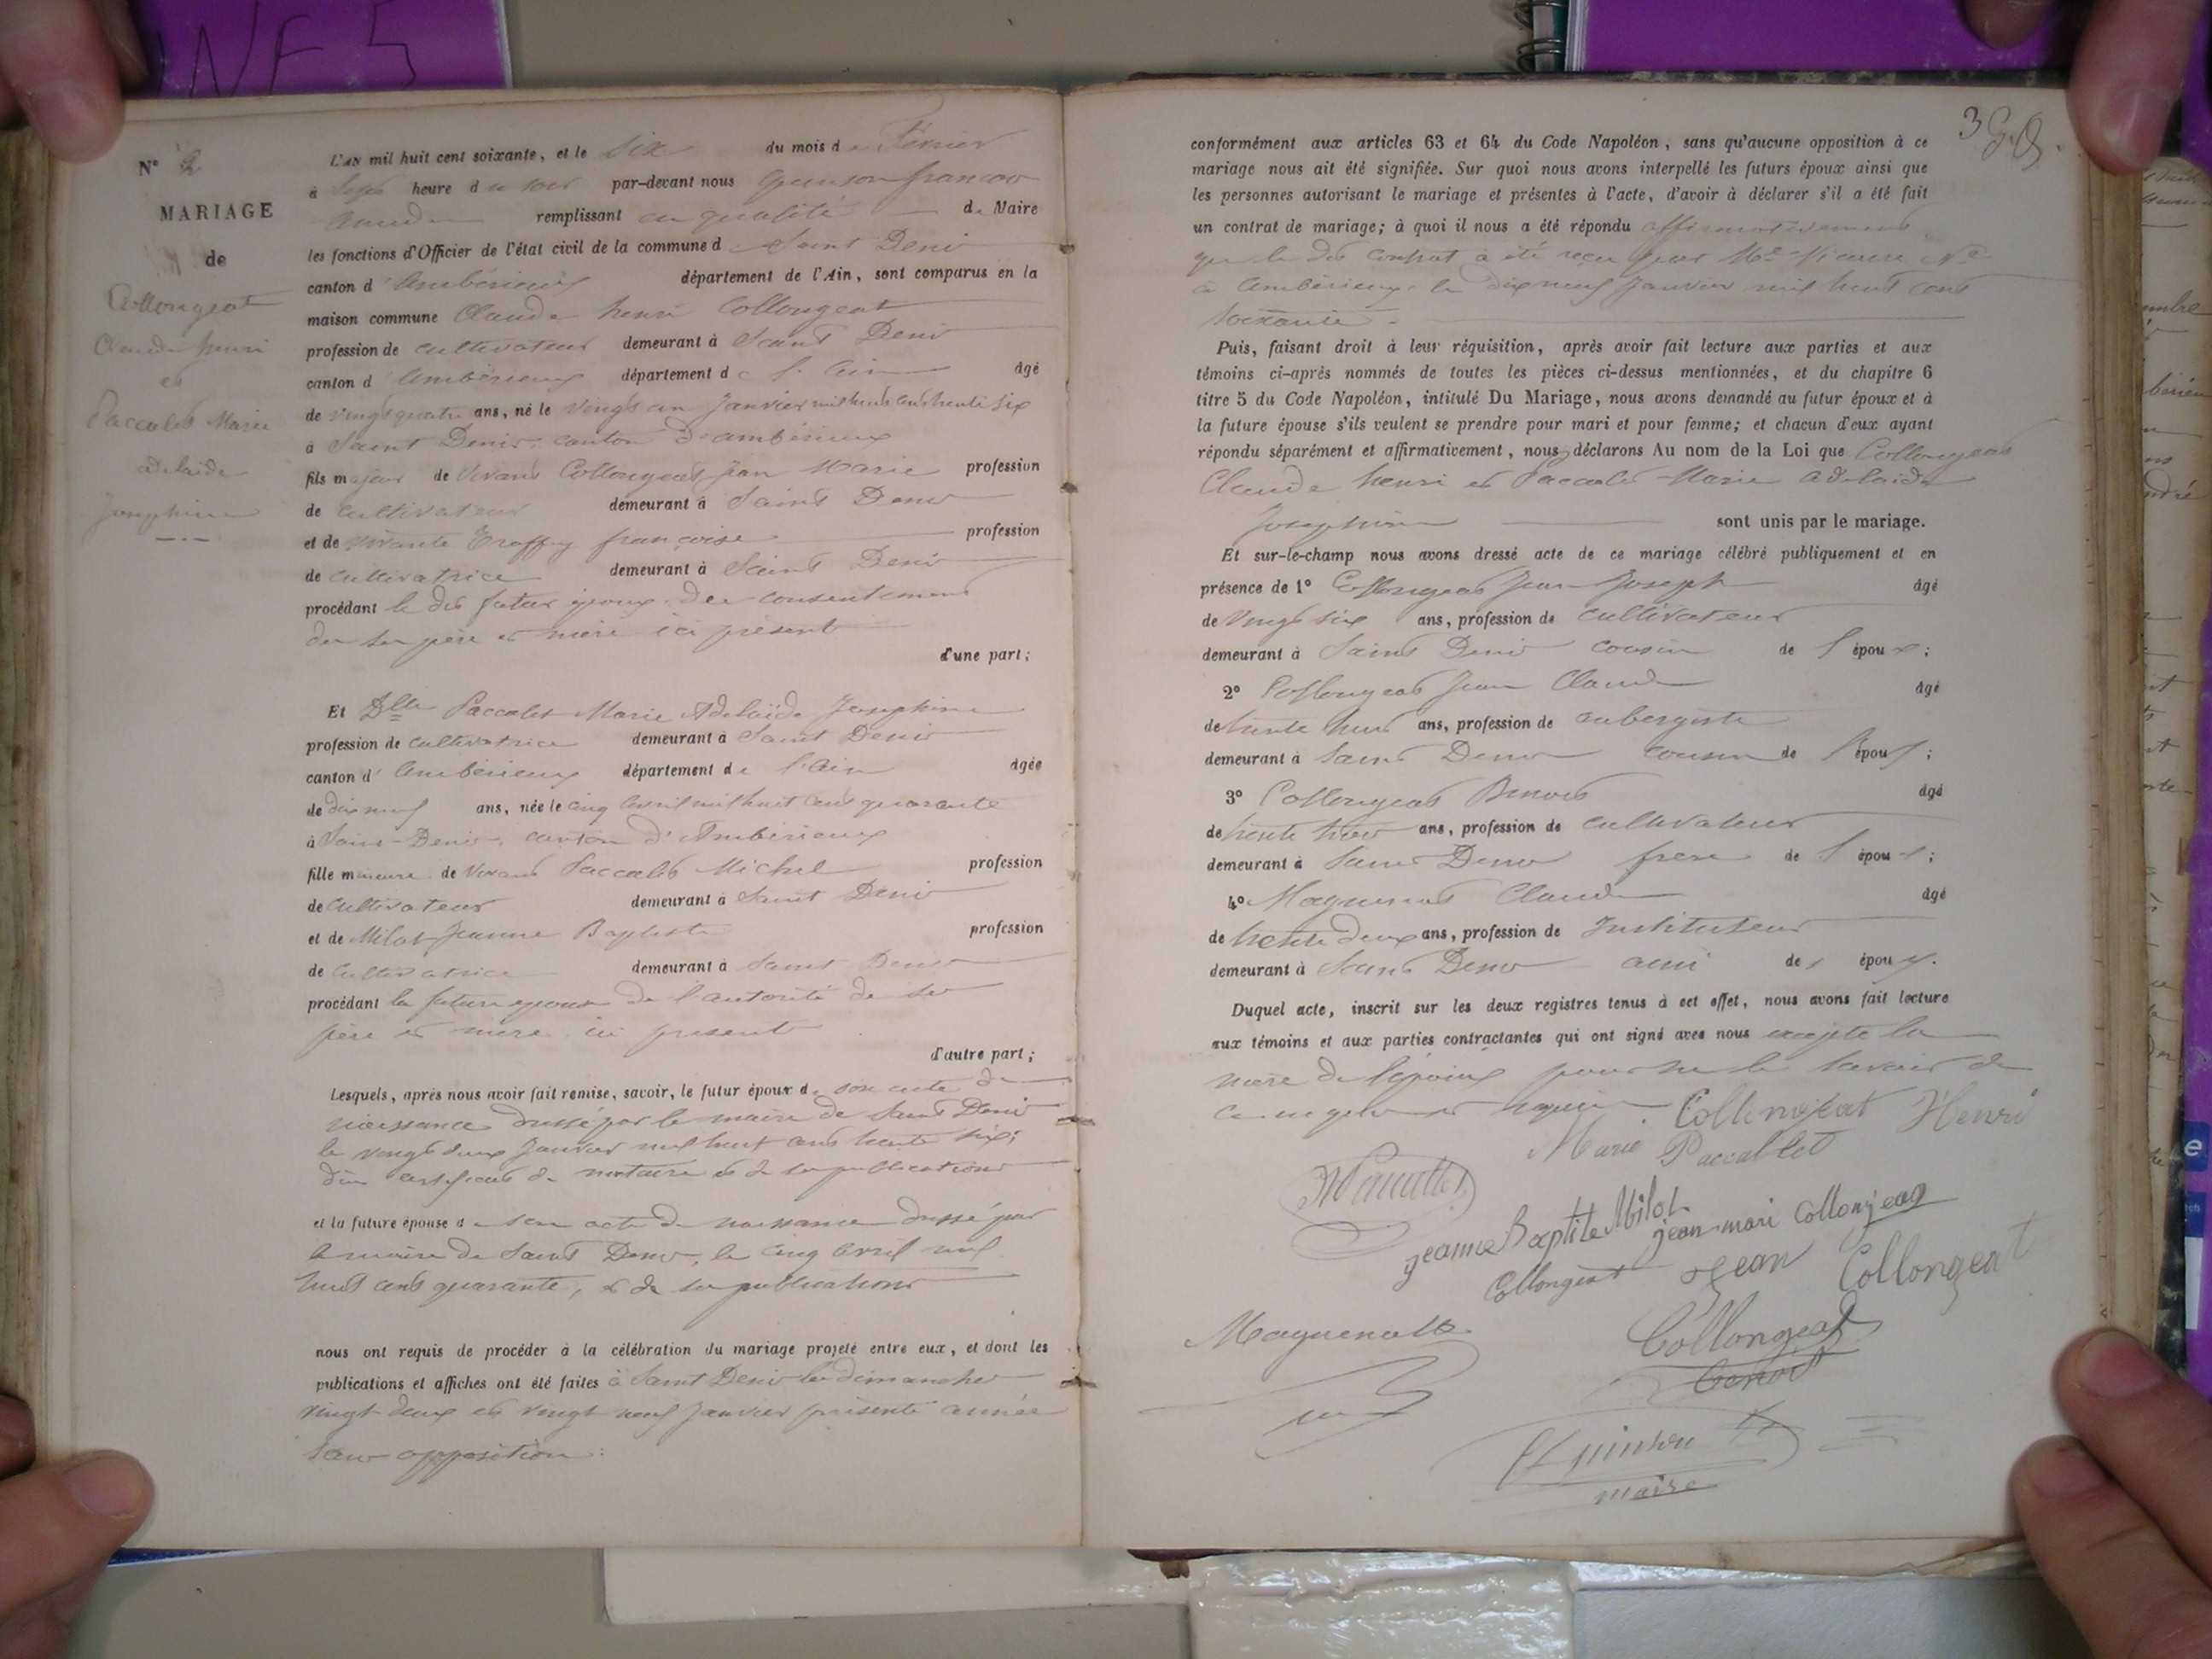 INF 5
N° 2
MARIAGE
de
Collongeat
Claude henri
et
Paccalet Marie
adelaide
josephine
L'AN mil huit cent soixante, et le six du mois de Février
à sept heure du soir par-devant nous Quinson francois
Claude remplissant en qualité de Maire
les fonctions d'Officier de l'état civil de la commune d Saint Denis
canton d'Ambérieux département de l'Ain, sont comparus en la
maison commune Claude henri Collongeat
profession de cultivateur demeurant à Saint Denis
canton d'Ambérieux département de l'Ain âgé
de vingt quatre ans, né le vingt un Janvier mil huit cent trente six
à Saint Denis, canton d'ambérieux
fils majeur de vivant Collongeat jean Marie profession
de cultivateur demeurant à Saint Denis
et de vivante Troffey françoise profession
de cultivatrice demeurant à Saint Denis
procédant le dit futur époux du consentement
de ses père et mère ici présent
d'une part;
Et Dlle Paccalet Marie Adelaïde Josephine
profession de cultivatrice demeurant à Saint Denis
canton d'Ambérieux département de l'Ain âgée
de dix neuf ans, née le cinq Avril mil huit cent quarante
à Saint-Denis, canton d'Ambérieux
fille mineure de vivant Paccalet Michel profession
de cultivateur demeurant à Saint Denis
et de Milat Jeanne Baptiste profession
de cultivatrice demeurant à Saint Denis
procédant la future epouse de l'autorité de ses
père et mère ici présent
d'autre part;
Lesquels, après nous avoir fait remise, savoir, le futur époux de son acte de
naissance dressé par le maire de Saint Denis
le vingt deux Janvier mil huit cent trente six;
d'un certificat de notaire et de ses publications
et la future épouse de son acte de naissance dressé par
le maire de Saint Denis, le cinq Avril mil
huit cent quarante, et de ses publications
nous ont requis de procéder à la célébration du mariage projeté entre eux, et dont les
publications et affiches ont été faites à Saint Denis les dimanches
vingt deux et vingt neuf Janvier présente année
sans opposition.
3
conformément aux articles 63 et 64 du Code Napoléon, sans qu'aucune opposition à ce
mariage nous ait été signifiée. Sur quoi nous avons interpellé les futurs époux ainsi que
les personnes autorisant le mariage et présentes à l'acte, d'avoir à déclarer s'il a été fait
un contrat de mariage; à quoi il nous a été répondu affirmativement
que le dit contrat a été reçu par Me
à Ambérieux, le dix neuf Janvier mil huit cent
soixante.
Puis, faisant droit à leur réquisition, après avoir fait lecture aux parties et aux
témoins ci-après nommés de toutes les pièces ci-dessus mentionnées, et du chapitre 6
titre 5 du Code Napoléon, intitulé Du Mariage, nous avons demandé au futur époux et à
la future épouse s'ils veulent se prendre pour mari et pour femme; et chacun d'eux ayant
répondu séparément et affirmativement, nous déclarons Au nom de la Loi que Collongeat
Claude henri et Paccalet Marie Adelaide
Josephine sont unis par le mariage.
Et sur-le-champ nous avons dressé acte de ce mariage célébré publiquement et en
présence de 1° Collongeat Jean Joseph âgé
de vingt six ans, profession de cultivateur
demeurant à Saint Denis cousin de l'époux;
2° Collongeat Jean Claude âgé
de trente huit ans, profession de aubergiste
demeurant à Saint Denis cousin de l'époux;
3° Collongeat Benoit âgé
de trente trois ans, profession de cultivateur
demeurant à Saint Denis frère de l'époux;
4° Magnenat Claude âgé
de trente deux ans, profession de Instituteur
demeurant à Saint Denis ami des époux.
Duquel acte, inscrit sur les deux registres tenus à cet effet, nous avons fait lecture
aux témoins et aux parties contractantes qui ont signé avec nous excepté la
mère de l'époux pour ne le savoir de
ce enquise et requise. Collongeat Henri
Marie Paccallet
jeanne Baptiste Milat jean mari Collonjeat
Collongeat Jean Collongeat
Magnenat
Collongeat
Benoit
Quinson
maire